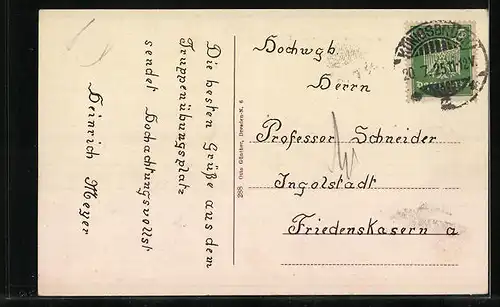 Die besten Grüße aus dem
Truppenübungsplatz
sendet Hochachtungsvollst
Heinrich Meyer
288 Otto Günther, Dresden-N. 6
Hochwgb.
Herrn
Professor Schneider
Ingolstadt
Friedenskasern a
KÖNIGSBRÜCK
20.7.25.11-12V.